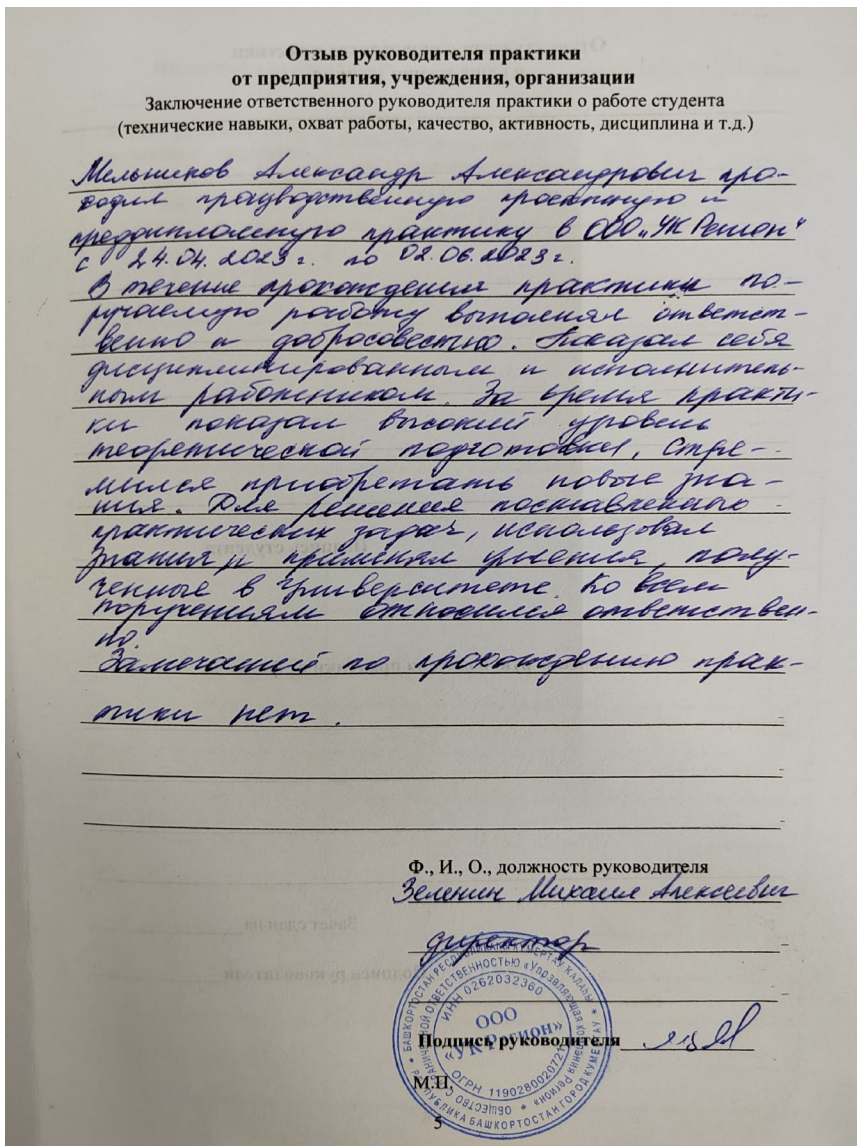 Отзыв руководителя практики
от предприятия, учреждения, организации
Заключение ответственного руководителя практики о работе студента
(технические навыки, охват работы, качество, активность, дисциплина и т.д.)
Мельников Александр Александрович про-
ходил производственную проектную и
преддипломную практику в ООО „УК Регион"
с 24.04.2023 г. по 02.06.2023 г.
В течение прохождения практики по-
ручаемую работу выполнял ответст-
венно и добросовестно. Показал себя
дисциплинированным и исполнитель-
ным работником. За время практи-
ки показал высокий уровень
теоретической подготовки, стре-
мился приобретать новые зна-
ния. Для решения поставленных
практических задач, использовал
знания и применял умения, полу-
ченные в Университете. Ко всем
поручениям относился ответствен-
но.
Замечаний по прохождению прак-
тики нет.
Ф., И., О., должность руководителя
Зеленин Михаил Алексеевич
директор
Подпись руководителя
М.П.
ООО
«УК Регион»
ИНН 0262032360
ОГРН 1190280020721
РЕСПУБЛИКА БАШКОРТОСТАН ГОРОД КУМЕРТАУ
БАШКОРТОСТАН РЕСПУБЛИКАҺЫ КУМЕРТАУ КАЛАҺЫ
5